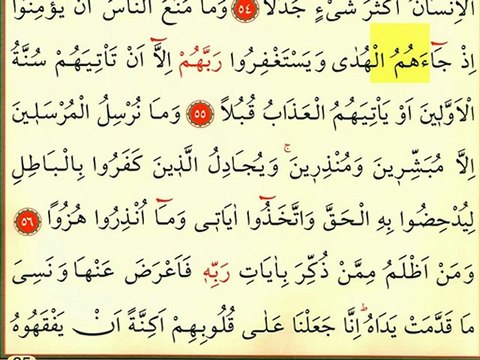 الْاِنْسَانُ اَكْثَرَ شَيْءٍ جَدَلًا ﴿٥٤﴾ وَمَا مَنَعَ النَّاسَ اَنْ يُؤْمِنُوا
اِذْ جَٓاءَهُمُ الْهُدٰى وَيَسْتَغْفِرُوا رَبَّهُمْ اِلَّٓا اَنْ تَأْتِيَهُمْ سُنَّةُ
الْاَوَّلٖينَ اَوْ يَأْتِيَهُمُ الْعَذَابُ قُبُلًا ﴿٥٥﴾ وَمَا نُرْسِلُ الْمُرْسَلٖينَ
اِلَّا مُبَشِّرٖينَ وَمُنْذِرٖينَۚ وَيُجَادِلُ الَّذٖينَ كَفَرُوا بِالْبَاطِلِ
لِيُدْحِضُوا بِهِ الْحَقَّ وَاتَّخَذُٓوا اٰيَاتٖى وَمَٓا اُنْذِرُوا هُزُوًا ﴿٥٦﴾
وَمَنْ اَظْلَمُ مِمَّنْ ذُكِّرَ بِاٰيَاتِ رَبِّهٖ فَاَعْرَضَ عَنْهَا وَنَسِىَ
مَا قَدَّمَتْ يَدَاهُؕ اِنَّا جَعَلْنَا عَلٰى قُلُوبِهِمْ اَكِنَّةً اَنْ يَفْقَهُوهُ